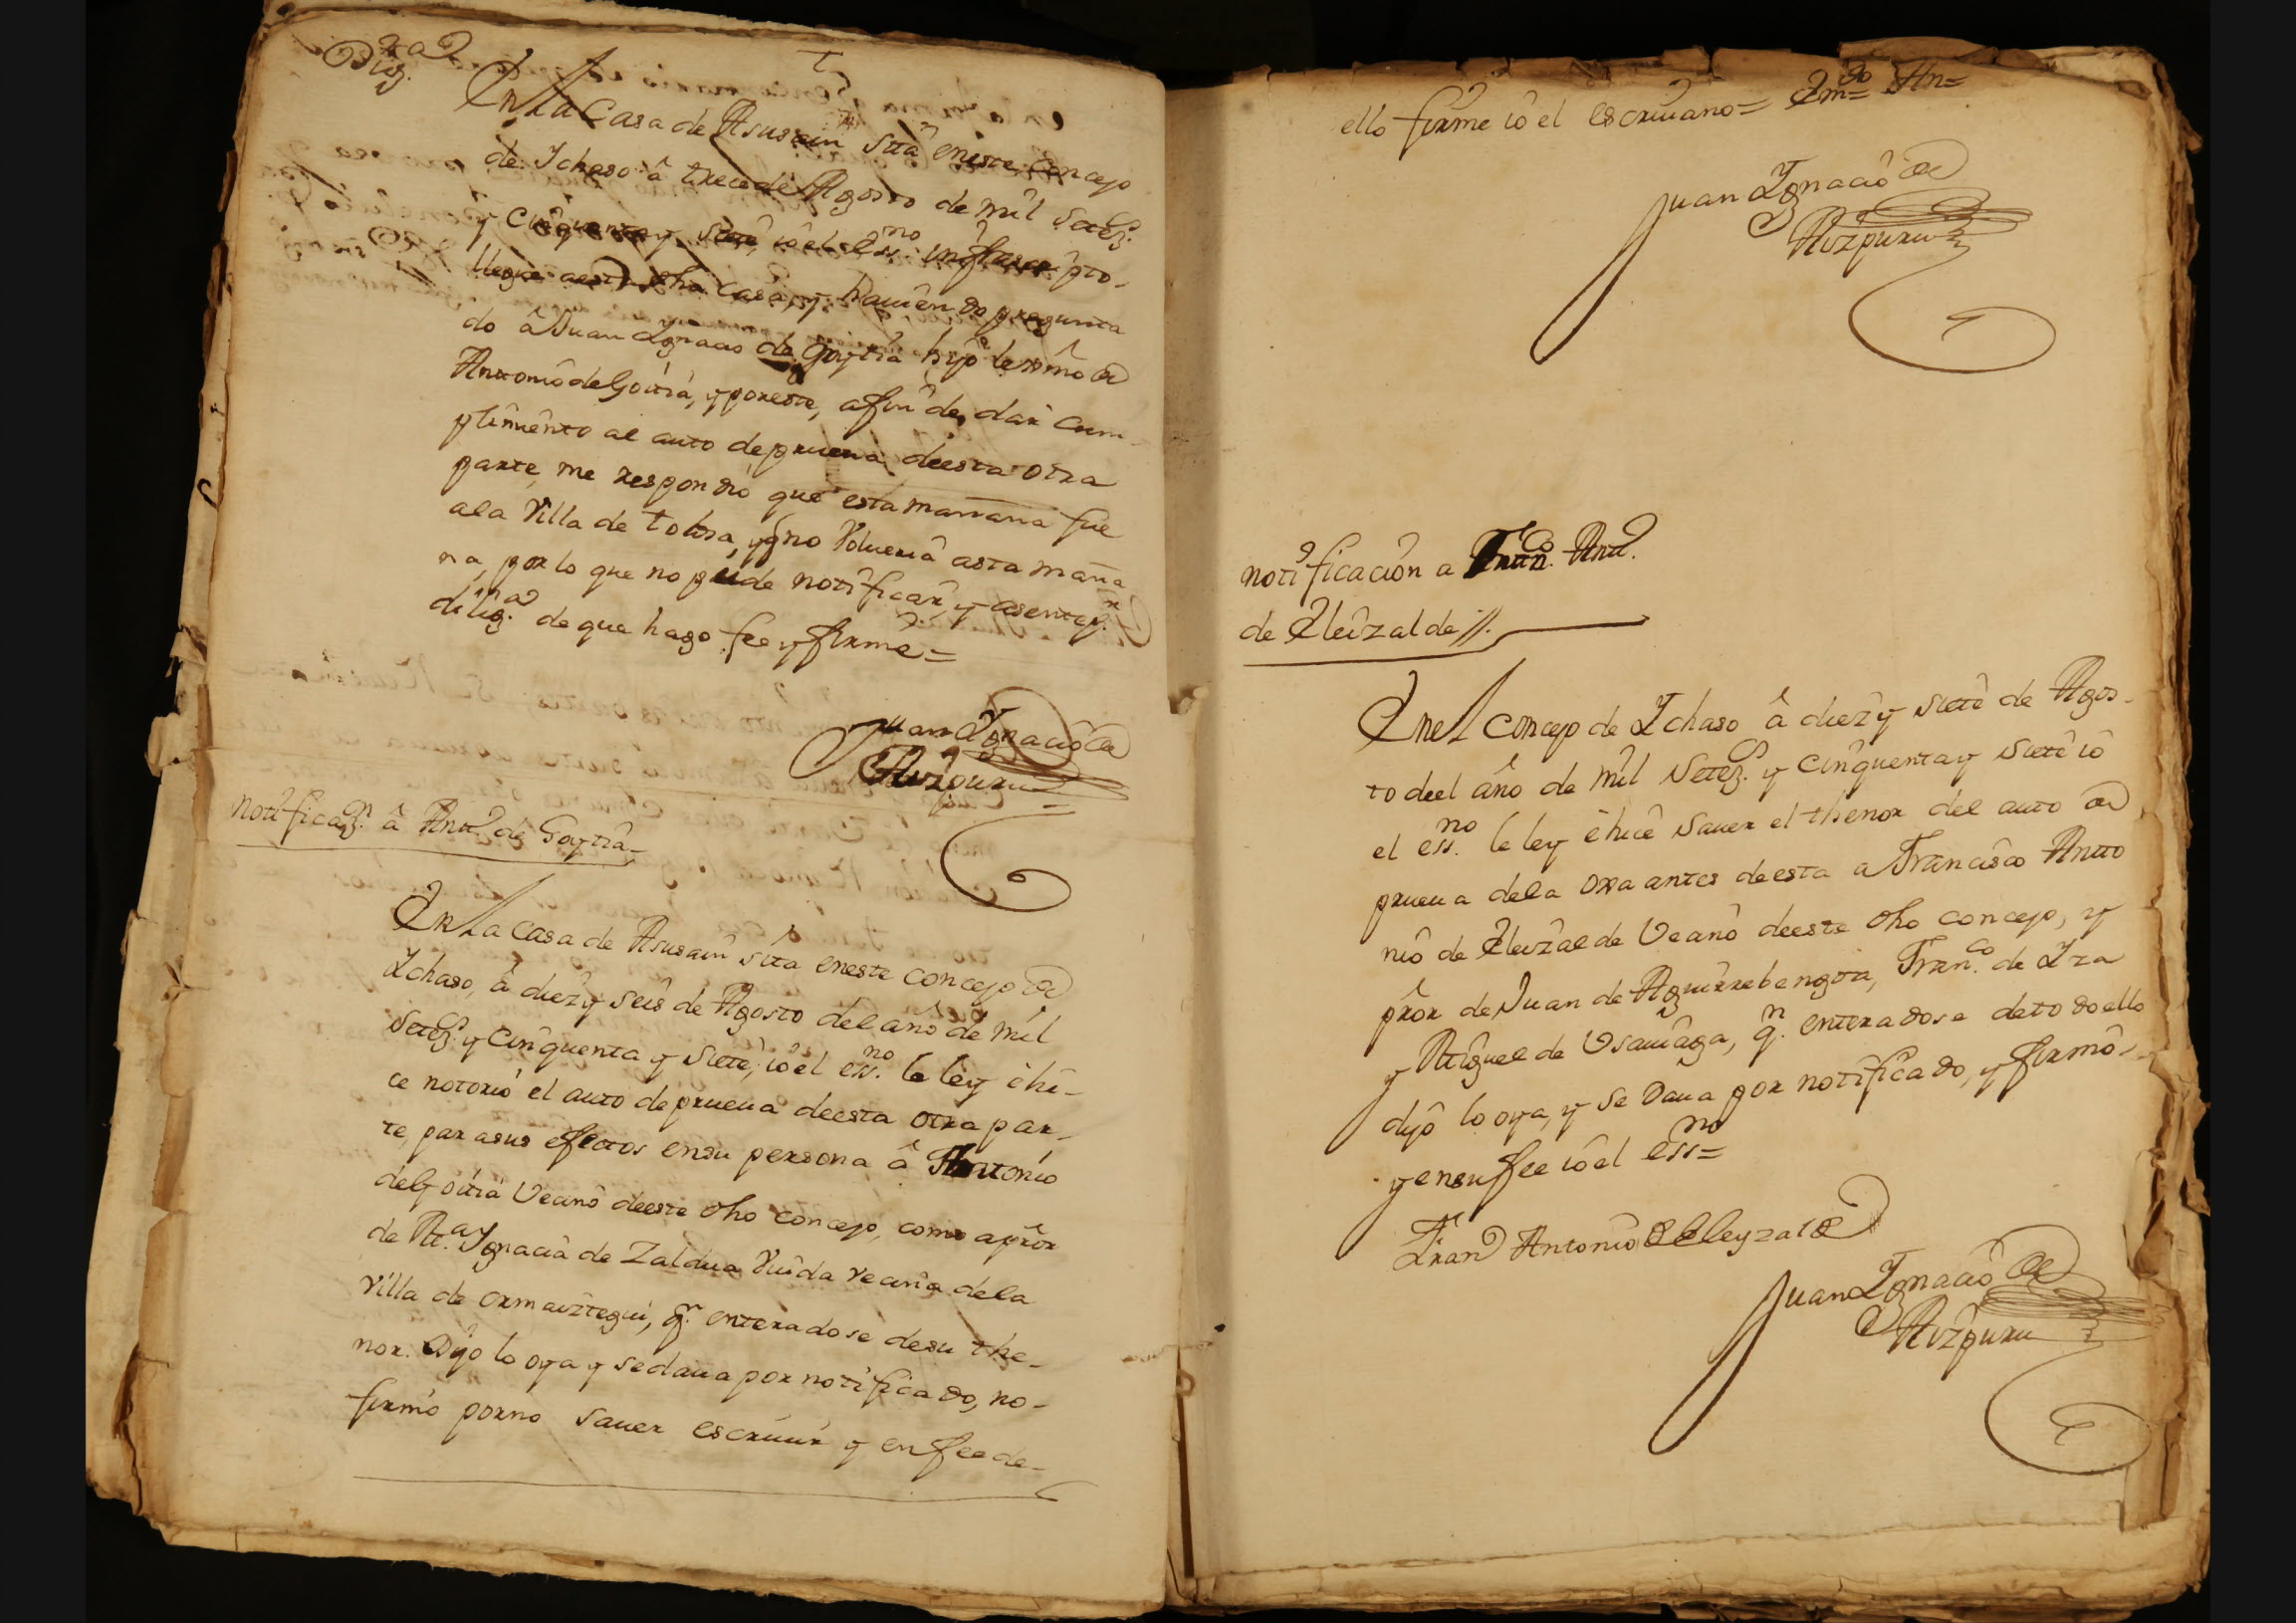 Dilig.a
En la Casa de Asusain sita eneste concejo
de Ychaso â trece de Agosto de mil Setez.s
y cinquenta y siete, io el ess.no infrascripto
llegue aesta dha casa, y hauiendo pregunta
do â Juan Ygnacio de Goytia hijo lexmo de
Antonio de Goitia, y poreste, afin de dar cum-
plimiento al auto deprueua deesta otra
parte, me respondio que esta mañana fue
ala Villa de Tolosa, y q no Voluerâ asta maña
na, por lo que no pude notificar, y asente p.r
dilig.a de que hago fee y firme=
Juan Ygnacio de
Aizpuru
Notificaz.n â Ant.o de Goytia
En la casa de Asusain sita eneste concejo de
Ychaso, â diez y seis de Agosto del año de mil
Setez.s y cinquenta y siete, io el ess.no le ley ê hi-
ce notorio el auto de prueua deesta otra par-
te, para sus efectos ensu persona â Antonio
de Goitia Vecino deeste dho concejo, como apror
de M.a Ygnacia de Zaldua Viuda vecina dela
Villa de ormaiztegui, q.n enteradose desu the-
nor. Dijo lo oya y sedaua por notificado, no-
firmo porno sauer escriuir y enfee de-
ello firme io el escriuano= Em.do An=
Juan Ygnacio de
Aizpuru
notificacion a Fran.co Ant.o
de Eleizalde //.
Enel concejo de Ychaso â diez y siete de Agos-
to deel año de mil Setez.s y cinquenta y siete io
el ess.no le ley ê hice sauer el thenor del auto de
prueua dela oxa antes deesta a Francisco Anto
nio de Eleizalde Vecino deeste dho concejo, y
pror de Juan de Aguirrebengoa, Fran.co de Yza
y Miguel de Usauiaga, q.n enteradose detodoello
dijo lo oya, y se Daua por notificado, y firmô-
y ensufee io el ess.no=
Fran.co Antonio de Eleyzalde
Juan Ygnacio de
Aizpuru